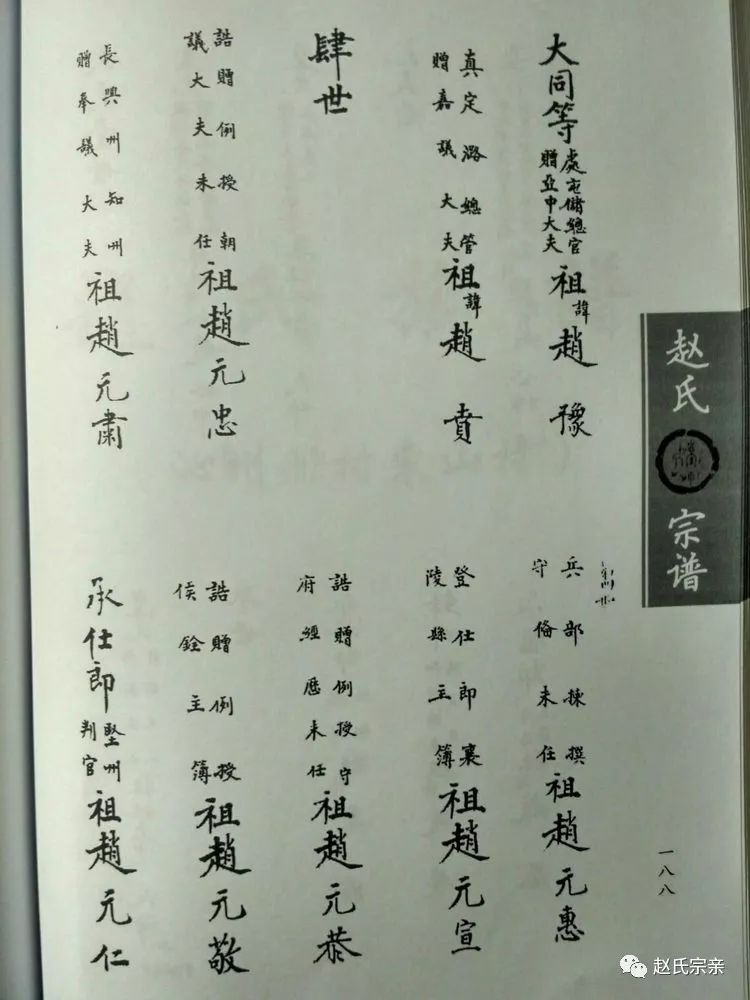 大同等處屯儲總官贈亞中大夫祖諱趙豫
真定潞總管贈嘉議大夫祖諱趙賁
肆世
誥贈例授朝議大夫未任祖趙元忠
長興州知州贈奉議大夫祖趙元肅
兵部揀撰守俻未任祖趙元惠
登仕郎襄陵縣主簿祖趙元宣
誥贈例授守府經歷未任祖趙元恭
誥贈例授侯銓主簿祖趙元敬
承仕郎堅州判官祖趙元仁
赵氏宗谱
一八八
赵氏宗亲